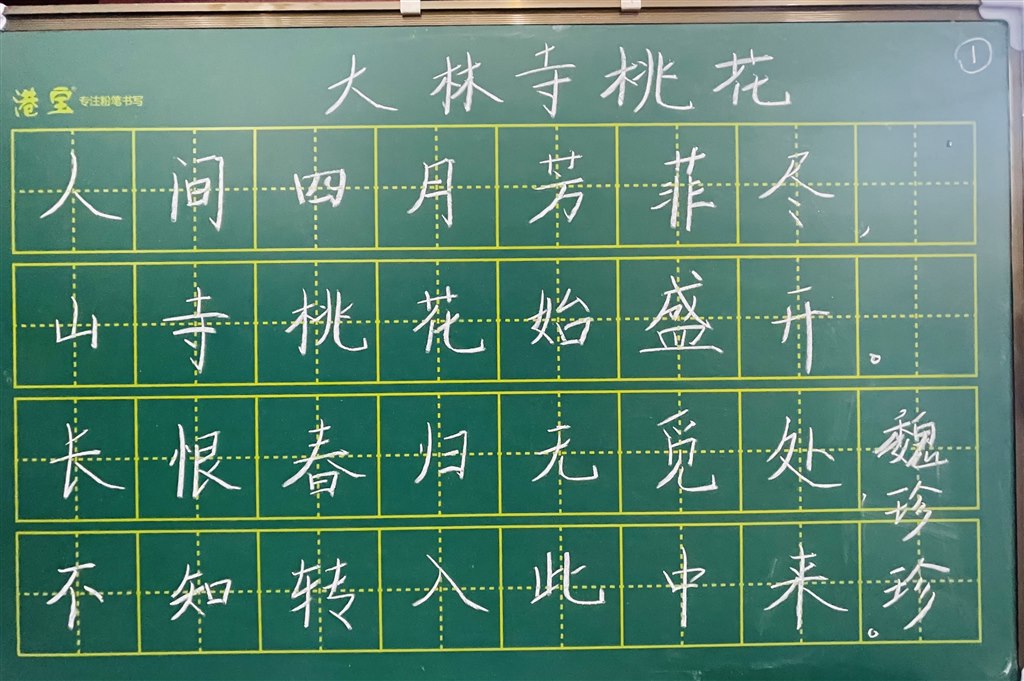 大林寺桃花
①
港宝 专注粉笔书写
人间四月芳菲尽,
山寺桃花始盛开。
长恨春归无觅处,
不知转入此中来。
魏珍珍